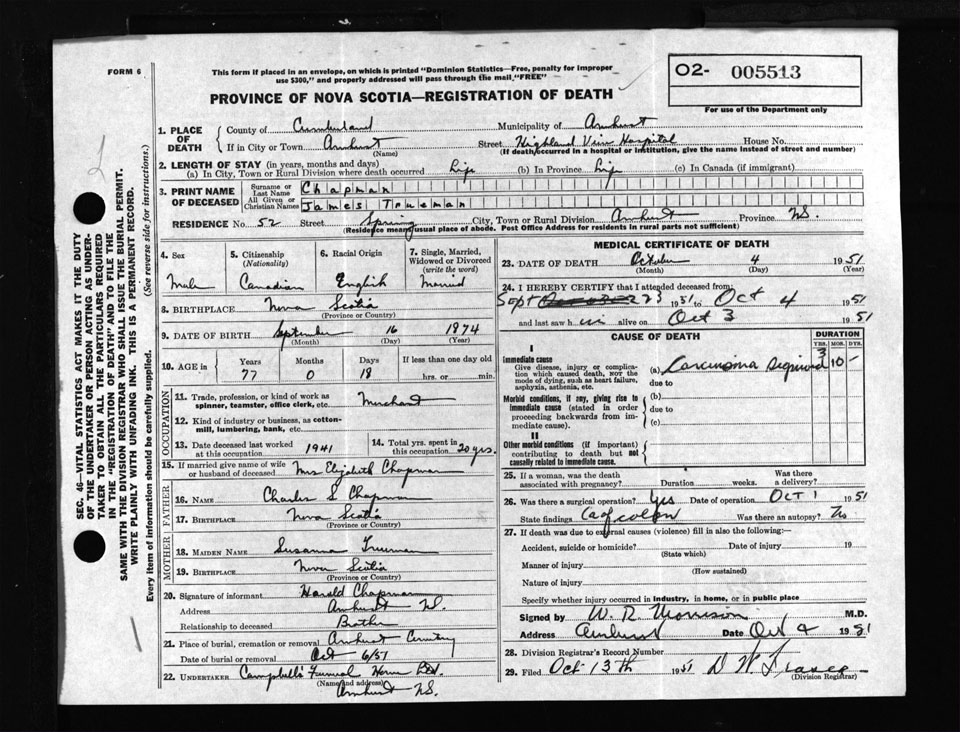 FORM 6
This form if placed in an envelope, on which is printed "Dominion Statistics—Free, penalty for improper
use $300," and properly addressed will pass through the mail, "FREE"
O2- 005513
For use of the Department only
PROVINCE OF NOVA SCOTIA—REGISTRATION OF DEATH
1. PLACE OF DEATH
County of Cumberland Municipality of Amherst
If in City or Town Amherst (Name) Street Highland View Hospital House No.
(If death occurred in a hospital or institution, give the name instead of street and number)
2. LENGTH OF STAY (in years, months and days)
(a) In City, Town or Rural Division where death occurred Life (b) In Province Life (c) In Canada (if immigrant)
3. PRINT NAME OF DECEASED
Surname or Last Name Chapman
All Given or Christian Names James Trueman
RESIDENCE No. 52 Street Spring City, Town or Rural Division Amherst Province N.S.
(Residence means usual place of abode. Post Office Address for residents in rural parts not sufficient)
4. Sex Male
5. Citizenship (Nationality) Canadian
6. Racial Origin English
7. Single, Married, Widowed or Divorced (write the word) Married
8. BIRTHPLACE Nova Scotia
(Province or Country)
9. DATE OF BIRTH September 16 1874
(Month) (Day) (Year)
10. AGE in Years 77 Months 0 Days 18 If less than one day old
hrs. or min.
OCCUPATION
11. Trade, profession, or kind of work as
spinner, teamster, office clerk, etc. Merchant
12. Kind of industry or business, as cotton-
mill, lumbering, bank, etc.
13. Date deceased last worked
at this occupation 1941
14. Total yrs. spent in
this occupation 20 yrs.
15. If married give name of wife
or husband of deceased Mrs Elizabeth Chapman
FATHER
16. NAME Charles S Chapman
17. BIRTHPLACE Nova Scotia
(Province or Country)
MOTHER
18. MAIDEN NAME Susanna Trueman
19. BIRTHPLACE Nova Scotia
(Province or Country)
20. Signature of informant Harold Chapman
Address Amherst N.S.
Relationship to deceased Brother
21. Place of burial, cremation or removal Amherst Cemetery
Date of burial or removal Oct 6/51
22. UNDERTAKER Campbell's Funeral Home
(Name and address)
Amherst N.S.
MEDICAL CERTIFICATE OF DEATH
23. DATE OF DEATH October 4 1951
(Month) (Day) (Year)
24. I HEREBY CERTIFY that I attended deceased from:
Sept 23 1951 to Oct 4 1951
and last saw him alive on Oct 3 1951
CAUSE OF DEATH
DURATION
YRS. MOS. DYS.
I
Immediate cause
Give disease, injury or complica-
tion which caused death, NOT the
mode of dying, such as heart failure,
asphyxia, asthenia, etc.
(a) Carcinoma Sigmoid 3 10 -
due to
Morbid conditions, if any, giving rise to
immediate cause (stated in order
proceeding backwards from im-
mediate cause).
(b)
due to
(c)
II
Other morbid conditions (if important)
contributing to death but not
causally related to immediate cause.
25. If a woman, was the death
associated with pregnancy? Duration weeks. Was there a delivery?
26. Was there a surgical operation? Yes Date of operation Oct 1 1951
State findings Ca of colon Was there an autopsy?
27. If death was due to external causes (violence) fill in also the following:—
Accident, suicide or homicide? Date of injury 19
(State which)
Manner of injury
(How sustained)
Nature of injury
Specify whether injury occurred in industry, in home, or in public place
Signed by W. R. Morrison M.D.
Address Amherst Date Oct 4 1951
28. Division Registrar's Record Number
29. Filed Oct 13th 1951 D W Fraser
(Division Registrar)
SEC. 46—VITAL STATISTICS ACT MAKES IT THE DUTY
OF THE UNDERTAKER OR PERSON ACTING AS UNDER-
TAKER TO OBTAIN ALL THE PARTICULARS REQUIRED
IN THE "REGISTRATION OF DEATH" AND TO FILE THE
SAME WITH THE DIVISION REGISTRAR WHO SHALL ISSUE THE BURIAL PERMIT.
WRITE PLAINLY WITH UNFADING INK. THIS IS A PERMANENT RECORD.
Every item of information should be carefully supplied. (See reverse side for instructions.)